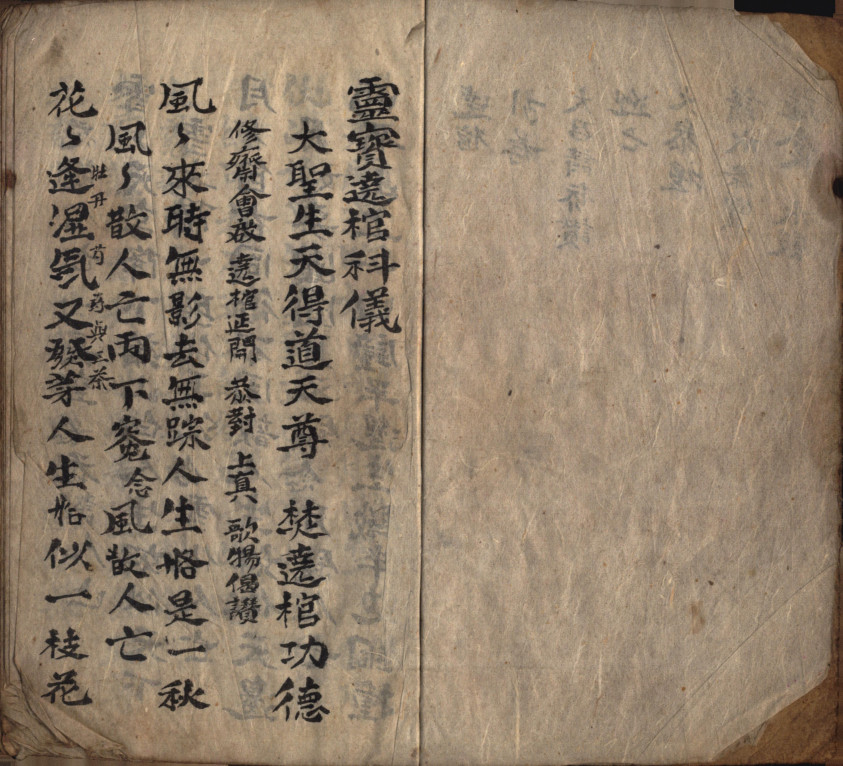 靈寶遶棺科儀
大聖生天得道天尊 焚遶棺功德
修齋會啟 遶棺延開 恭對 上真 歌揚偈讚
風〻來時無影去無踪人生恰是一秋
風〻散人亡兩下 念風散人亡
花〻逢濕氣又發芽人生恰似一枝花
牡丹芍葯與三茶